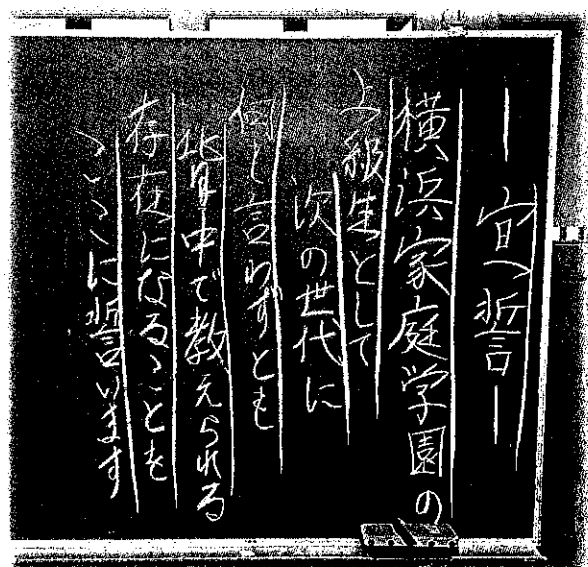 ― 宣誓 ―
横浜家庭学園の
上級生として
次の世代に
何も言わずとも
背中で教えられる
存在になることを
ここに誓います